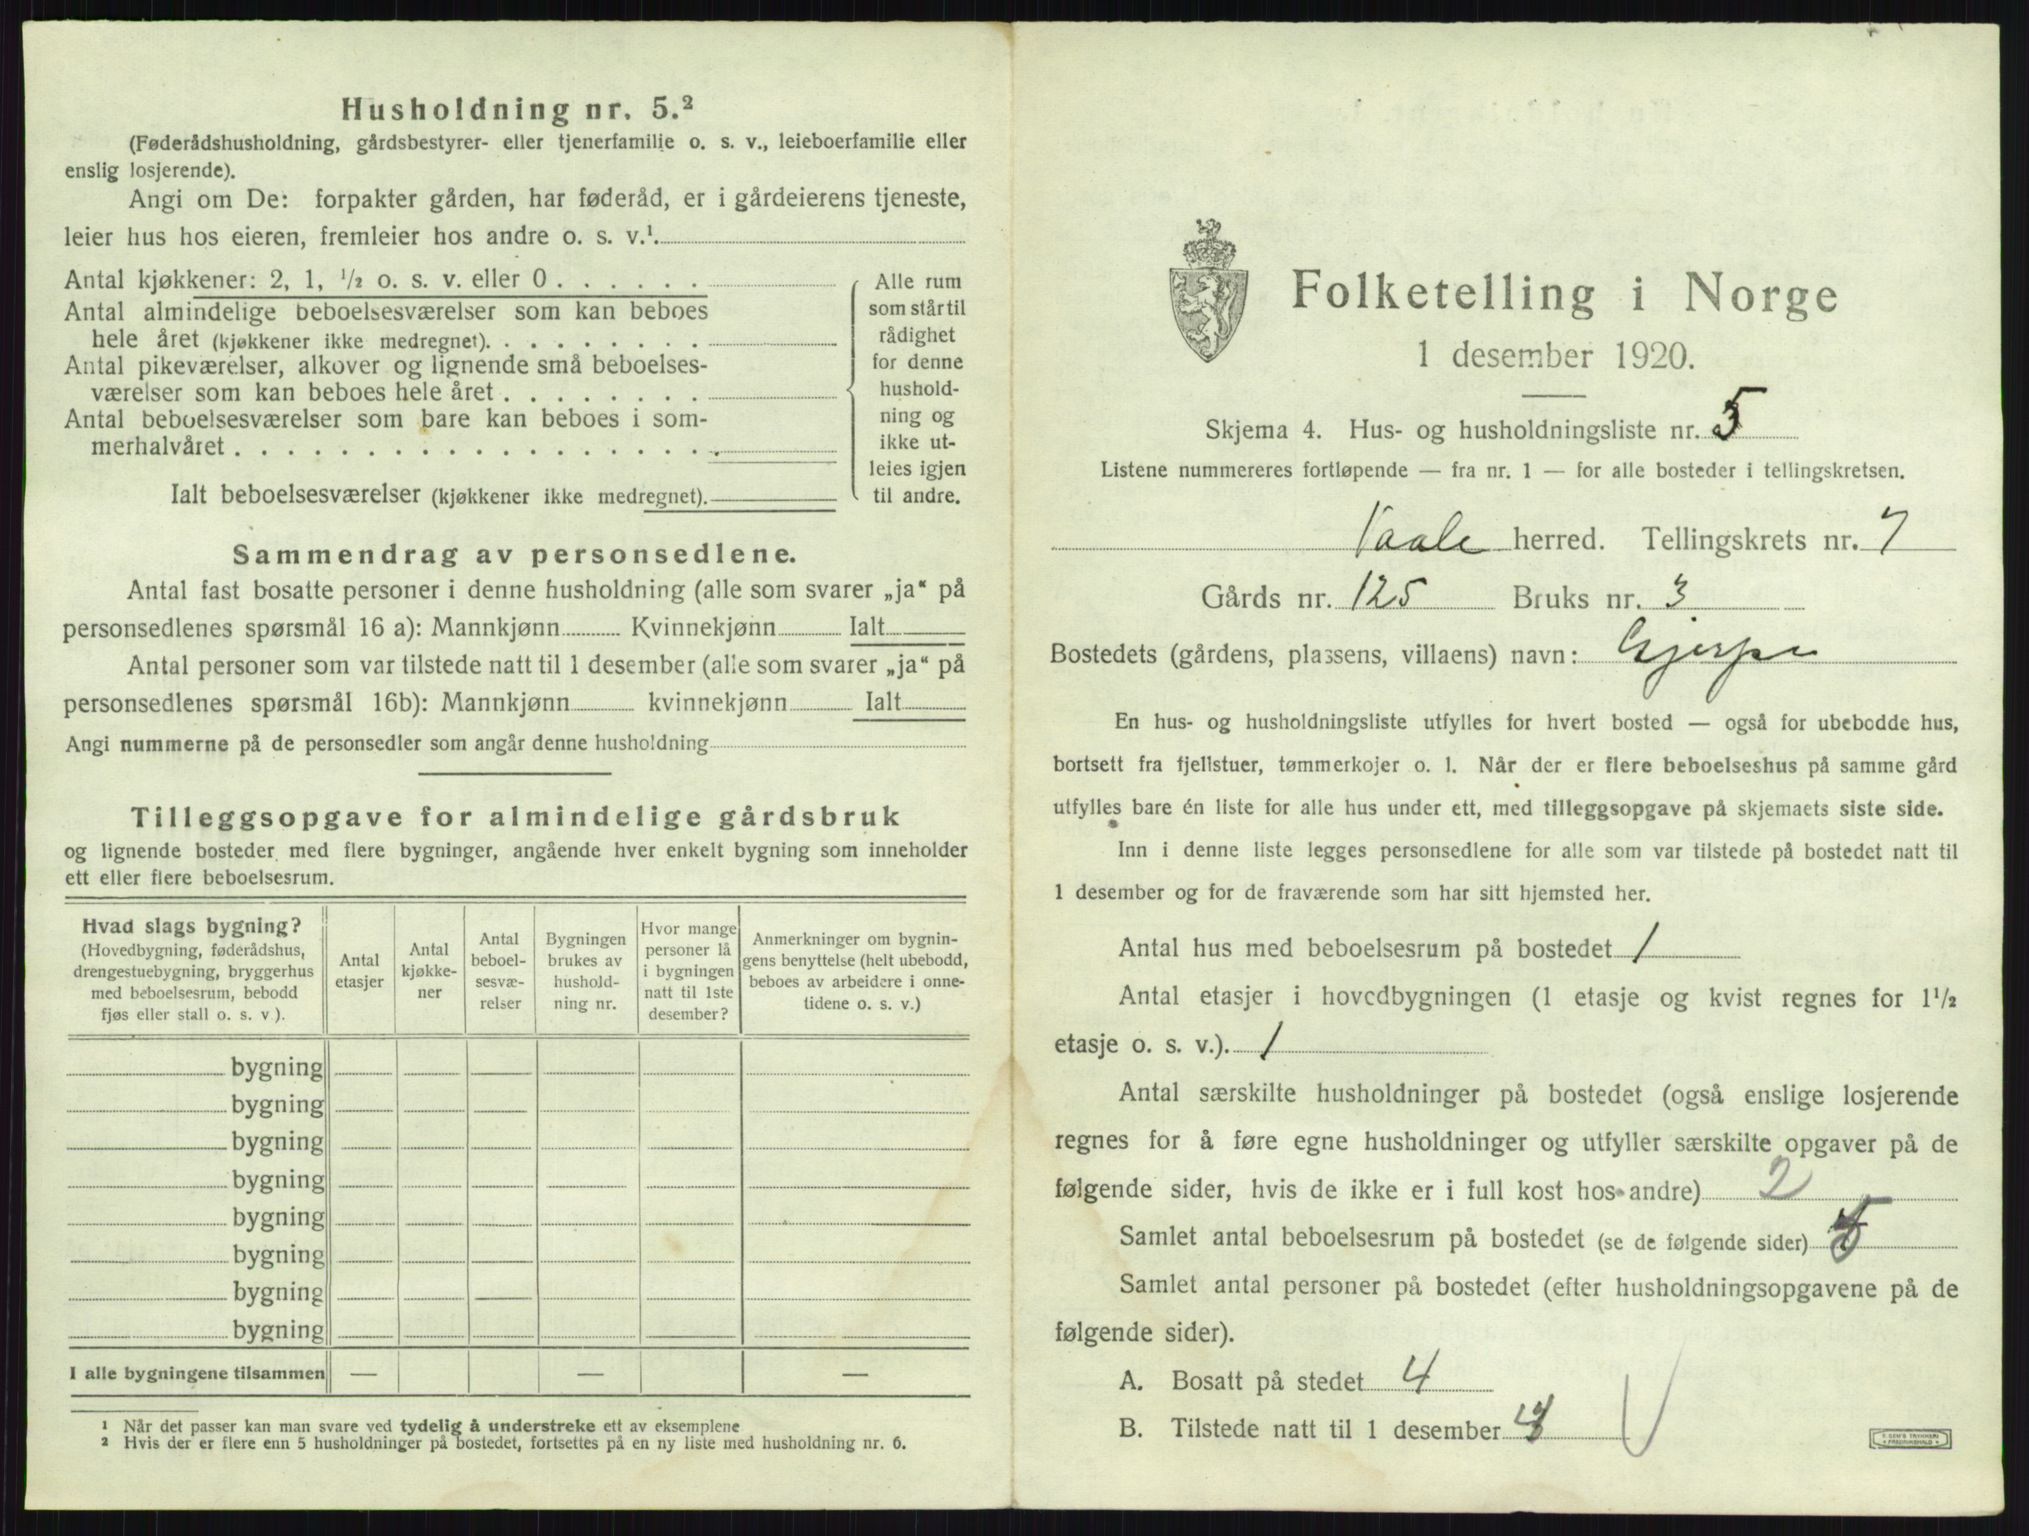 Husholdning nr. 5.²
(Føderådshusholdning, gårdsbestyrer- eller tjenerfamilie o. s. v., leieboerfamilie eller
enslig losjerende).
Angi om De: forpakter gården, har føderåd, er i gårdeierens tjeneste,
leier hus hos eieren, fremleier hos andre o. s. v.¹
Antal kjøkkener: 2, 1, ½ o. s. v. eller 0 . . . . . .
Antal almindelige beboelsesværelser som kan beboes
hele året (kjøkkener ikke medregnet). . . . . . . . .
Antal pikeværelser, alkover og lignende små beboelses-
værelser som kan beboes hele året . . . . . . . .
Antal beboelsesværelser som bare kan beboes i som-
merhalvåret . . . . . . . . . . . . . . . . . .
Ialt beboelsesværelser (kjøkkener ikke medregnet).
Alle rum
som står til
rådighet
for denne
hushold-
ning og
ikke ut-
leies igjen
til andre.
Sammendrag av personsedlene.
Antal fast bosatte personer i denne husholdning (alle som svarer „ja“ på
personsedlenes spørsmål 16 a): Mannkjønn Kvinnekjønn Ialt
Antal personer som var tilstede natt til 1 desember (alle som svarer „ja“ på
personsedlenes spørsmål 16b): Mannkjønn kvinnekjønn Ialt
Angi nummerne på de personsedler som angår denne husholdning
Tilleggsopgave for almindelige gårdsbruk
og lignende bosteder med flere bygninger, angående hver enkelt bygning som inneholder
ett eller flere beboelsesrum.
Hvad slags bygning?
(Hovedbygning, føderådshus,
drengestuebygning, bryggerhus
med beboelsesrum, bebodd
fjøs eller stall o. s. v ).
Antal
etasjer
Antal
kjøkke-
ner
Antal
beboel-
sesvæ-
relser
Bygningen
brukes av
hushold-
ning nr.
Hvor mange
personer lå
i bygningen
natt til 1ste
desember?
Anmerkninger om bygnin-
gens benyttelse (helt ubebodd,
beboes av arbeidere i onne-
tidene o. s. v.)
bygning
bygning
bygning
bygning
bygning
bygning
bygning
bygning
I alle bygningene tilsammen — — —
¹ Når det passer kan man svare ved tydelig å understreke ett av eksemplene
² Hvis der er flere enn 5 husholdninger på bostedet, fortsettes på en ny liste med husholdning nr. 6.
Folketelling i Norge
1 desember 1920.
Skjema 4. Hus- og husholdningsliste nr. 5
Listene nummereres fortløpende — fra nr. 1 — for alle bosteder i tellingskretsen.
Vaale herred. Tellingskrets nr. 7
Gårds nr. 125 Bruks nr. 3
Bostedets (gårdens, plassens, villaens) navn: Gjerpe
En hus- og husholdningsliste utfylles for hvert bosted — også for ubebodde hus,
bortsett fra fjellstuer, tømmerkojer o. l. Når der er flere beboelseshus på samme gård
utfylles bare én liste for alle hus under ett, med tilleggsopgave på skjemaets siste side.
Inn i denne liste legges personsedlene for alle som var tilstede på bostedet natt til
1 desember og for de fraværende som har sitt hjemsted her.
Antal hus med beboelsesrum på bostedet 1
Antal etasjer i hovedbygningen (1 etasje og kvist regnes for 1½
etasje o. s. v.). 1
Antal særskilte husholdninger på bostedet (også enslige losjerende
regnes for å føre egne husholdninger og utfyller særskilte opgaver på de
følgende sider, hvis de ikke er i full kost hos andre) 2
Samlet antal beboelsesrum på bostedet (se de følgende sider)
Samlet antal personer på bostedet (efter husholdningsopgavene på de
følgende sider).
A. Bosatt på stedet 4
B. Tilstede natt til 1 desember